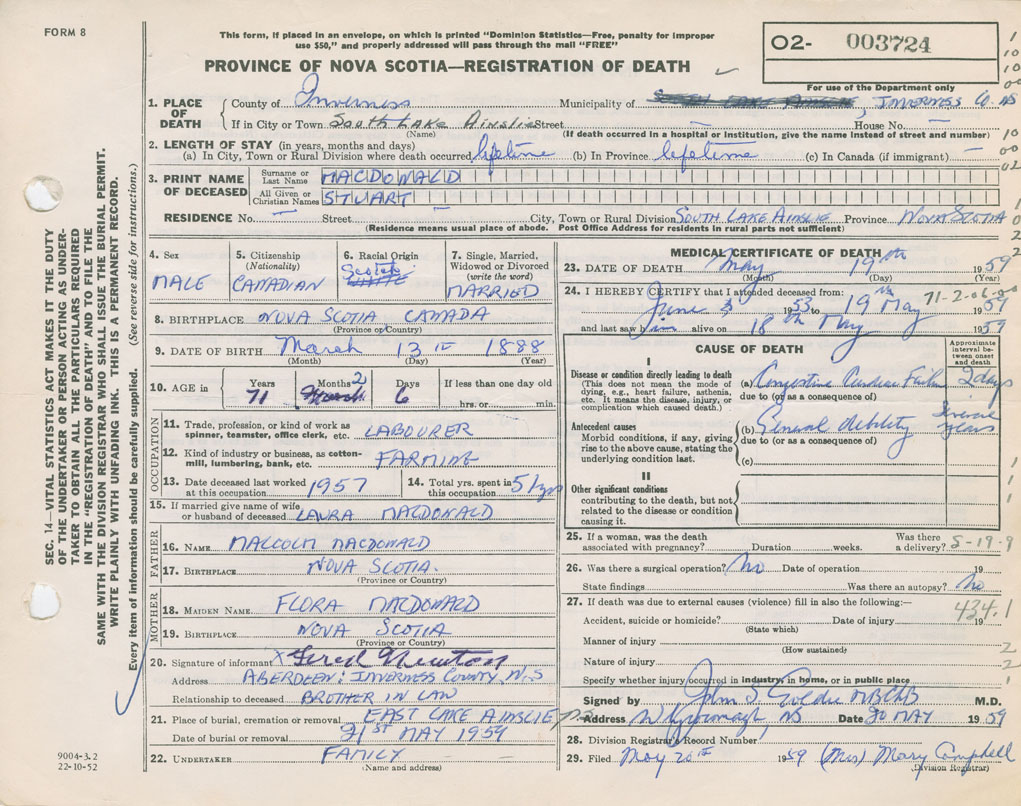 FORM 8
This form, if placed in an envelope, on which is printed "Dominion Statistics—Free, penalty for improper
use $50," and properly addressed will pass through the mail "FREE"
O2- 003724
For use of the Department only
PROVINCE OF NOVA SCOTIA—REGISTRATION OF DEATH
SEC. 14—VITAL STATISTICS ACT MAKES IT THE DUTY
OF THE UNDERTAKER OR PERSON ACTING AS UNDER-
TAKER TO OBTAIN ALL THE PARTICULARS REQUIRED
IN THE "REGISTRATION OF DEATH" AND TO FILE THE
SAME WITH THE DIVISION REGISTRAR WHO SHALL ISSUE THE BURIAL PERMIT.
WRITE PLAINLY WITH UNFADING INK. THIS IS A PERMANENT RECORD.
Every item of information should be carefully supplied. (See reverse side for instructions.)
1. PLACE OF DEATH
County of Inverness Municipality of INVERNESS Co. NS
If in City or Town South Lake Ainslie Street — House No. —
(Name) (If death occurred in a hospital or institution, give the name instead of street and number)
2. LENGTH OF STAY (in years, months and days)
(a) In City, Town or Rural Division where death occurred lifetime (b) In Province lifetime (c) In Canada (if immigrant) —
3. PRINT NAME OF DECEASED
Surname or Last Name MACDONALD
All Given or Christian Names STUART
RESIDENCE No. — Street — City, Town or Rural Division SOUTH LAKE AINSLIE Province NOVA SCOTIA
(Residence means usual place of abode. Post Office Address for residents in rural parts not sufficient)
4. Sex
MALE
5. Citizenship
(Nationality)
CANADIAN
6. Racial Origin
Scotch
7. Single, Married,
Widowed or Divorced
(write the word)
MARRIED
8. BIRTHPLACE NOVA SCOTIA CANADA
(Province or Country)
9. DATE OF BIRTH March 13th 1888
(Month) (Day) (Year)
10. AGE in Years Months Days If less than one day old
71 2 6 hrs. or min.
OCCUPATION
11. Trade, profession, or kind of work as
spinner, teamster, office clerk, etc. LABOURER
12. Kind of industry or business, as cotton-
mill, lumbering, bank, etc. FARMING
13. Date deceased last worked
at this occupation 1957
14. Total yrs. spent in
this occupation 51 yrs
15. If married give name of wife
or husband of deceased LAURA MACDONALD
FATHER
16. NAME MALCOLM MACDONALD
17. BIRTHPLACE NOVA SCOTIA.
(Province or Country)
MOTHER
18. MAIDEN NAME FLORA MACDONALD
19. BIRTHPLACE NOVA SCOTIA
(Province or Country)
20. Signature of informant X Fred Newton
Address ABERDEEN: INVERNESS COUNTY, N.S
Relationship to deceased BROTHER IN LAW
21. Place of burial, cremation or removal EAST LAKE AINSLIE
Date of burial or removal 21ST MAY 1959
22. UNDERTAKER FAMILY
(Name and address)
9004-3.2
22-10-52
MEDICAL CERTIFICATE OF DEATH
23. DATE OF DEATH May 19th 1959
(Month) (Day) (Year)
71-2-06-00
24. I HEREBY CERTIFY that I attended deceased from:
June 3 1953 to 19th May 1959
and last saw him alive on 18th May 1959
CAUSE OF DEATH
Approximate
interval be-
tween onset
and death
I
Disease or condition directly leading to death
(This does not mean the mode of
dying, e.g., heart failure, asthenia,
etc. It means the disease, injury, or
complication which caused death.)
(a) Congestive Cardiac Failure 2 days
due to (or as a consequence of)
Antecedent causes
Morbid conditions, if any, giving
rise to the above cause, stating the
underlying condition last.
(b) General debility several years
due to (or as a consequence of)
(c)
II
Other significant conditions
contributing to the death, but not
related to the disease or condition
causing it.
25. If a woman, was the death
associated with pregnancy? Duration weeks. Was there
a delivery?
5-19-9
26. Was there a surgical operation? No Date of operation 19
State findings Was there an autopsy? No
27. If death was due to external causes (violence) fill in also the following:—
434.1
Accident, suicide or homicide? Date of injury 19
(State which)
Manner of injury
(How sustained)
Nature of injury
Specify whether injury occurred in industry, in home, or in public place
Signed by John S Goldie MBChB M.D.
Address Whycocomagh NS Date 20 MAY 1959
28. Division Registrar's Record Number
29. Filed May 20th 1959 (Mrs) Mary Campbell
(Division Registrar)